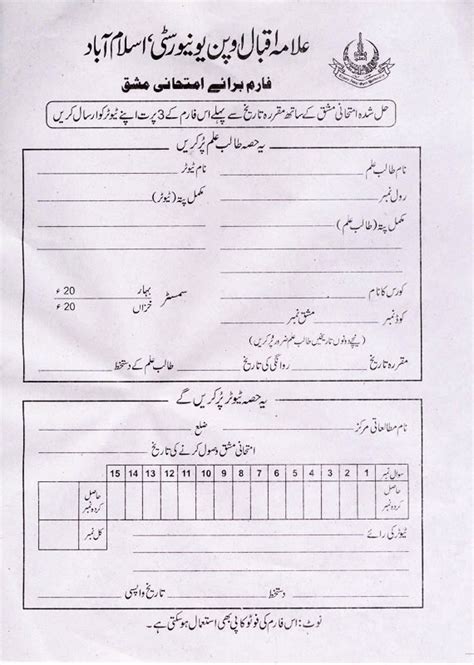 علامہ اقبال اوپن یونیورسٹی، اسلام آباد
فارم برائے امتحانی مشق
حل شدہ امتحانی مشق کے ساتھ مقررہ تاریخ سے پہلے اس فارم کے 3 پرت اپنے ٹیوٹر کو ارسال کریں
یہ حصہ طالب علم پُر کریں
نام طالب علم نام ٹیوٹر
رول نمبر مکمل پتہ (ٹیوٹر)
مکمل پتہ (طالب علم)
کورس کا نام سمسٹر بہار 20 ء
کوڈ نمبر مشق نمبر خزاں 20 ء
(نیچے دونوں تاریخیں طالب علم ضرور پُر کریں)
مقررہ تاریخ روانگی کی تاریخ طالب علم کے دستخط
یہ حصہ ٹیوٹر پُر کریں گے
نام مطالعاتی مرکز ضلع
امتحانی مشق وصول کرنے کی تاریخ
سوال نمبر 1 2 3 4 5 6 7 8 9 10 11 12 13 14 15
حاصل کردہ نمبر حاصل کردہ نمبر
کل نمبر
ٹیوٹر کی رائے
دستخط تاریخ واپسی
نوٹ: اس فارم کی فوٹو کاپی بھی استعمال ہو سکتی ہے۔